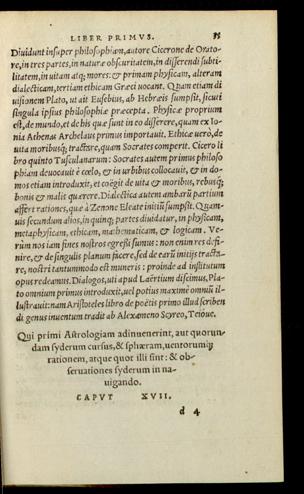 LIBER PRIMVS. 35
Diuidunt insuper philosophiam, autore Cicerone de Orato-
re, in tres partes, in naturæ obscuritatem, in disserendi subti-
litatem, in uitam atq; mores: & primam physicam, alteram
dialecticam, tertiam ethicam Græci uocant. Quam etiam di
uisionem Plato, ut ait Eusebius, ab Hebræis sumpsit, sicuti
singula ipsius philosophiæ præcepta. Physicæ proprium
est, de mundo, et de his quæ sunt in eo disserere, quam ex Io-
nia Athenas Archelaus primus importauit. Ethicæ uerò, de
uita moribusq; tractare, quam Socrates comperit. Cicero li
bro quinto Tusculanarum: Socrates autem primus philoso
phiam deuocauit è cœlo, & in urbibus collocauit, & in do-
mos etiam introduxit, et coëgit de uita & moribus, rebusq;
bonis & malis quærere. Dialectica autem ambarũ partium
affert rationes, quæ à Zenone Eleate initiũ sumpsit. Quam-
uis secundum alios, in quinq; partes diuidatur, in physicam,
metaphysicam, ethicam, mathematicam, & logicam. Ve-
rùm nos iam fines nostros egressi sumus: non enim res defi-
nire, & de singulis planum facere, sed de earũ initijs tracta-
re, nostri tantummodo est muneris: proinde ad institutum
opus redeamus. Dialogos, uti apud Laërtium discimus, Pla-
to omnium primus introduxit, uel potius maximè omniũ il-
lustrauit: nam Aristoteles libro de poëtis primo illud scribendi
di genus inuentum tradit ab Alexameno Scyreo, Teioue.
Qui primi Astrologiam adinuenerint, aut quorun-
dam syderum cursus, & sphæram, uentorumq;
rationem, atque quot illi sint: & ob-
seruationes syderum in na-
uigando.
CAPVT XVII.
d 4